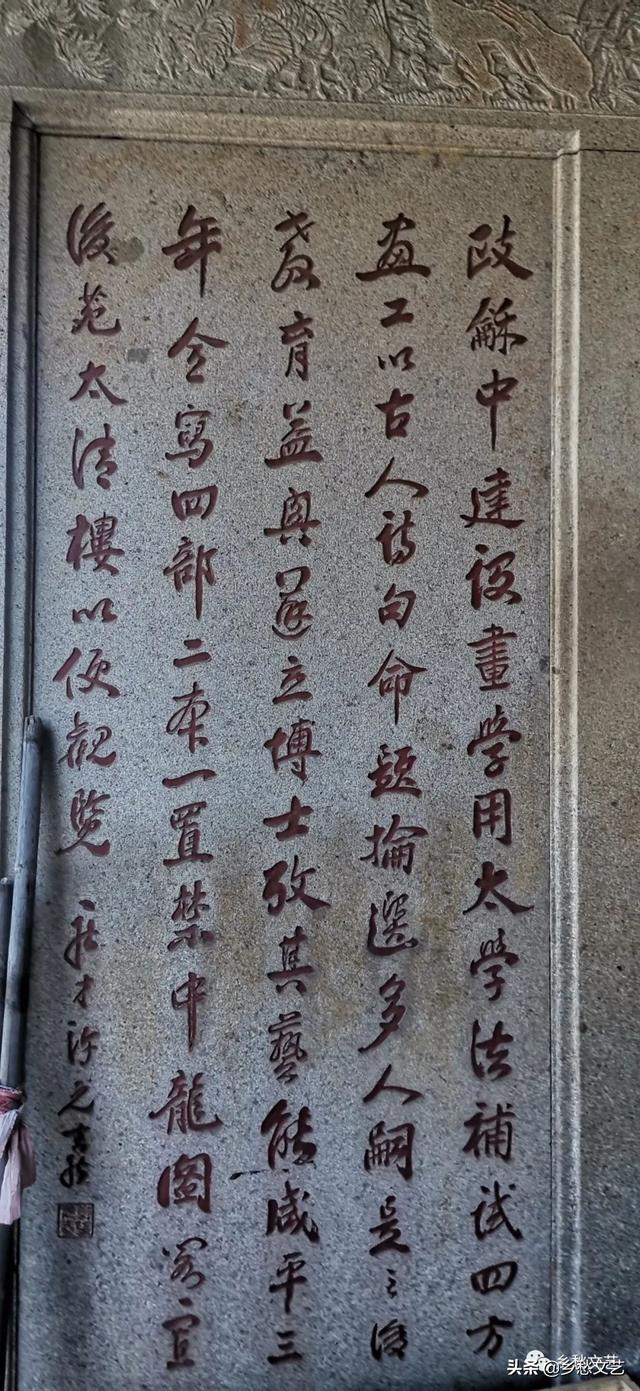 政龢中建設畫學用太學法補試四方
画工以古人詩句命題掄選多人嗣是之後
教育益興遂立博士攷其藝能咸平三
年令寫四部二本一置禁中龍圖閣
後苑太清樓以便觀覽
乡愁文艺
头条@乡愁文艺